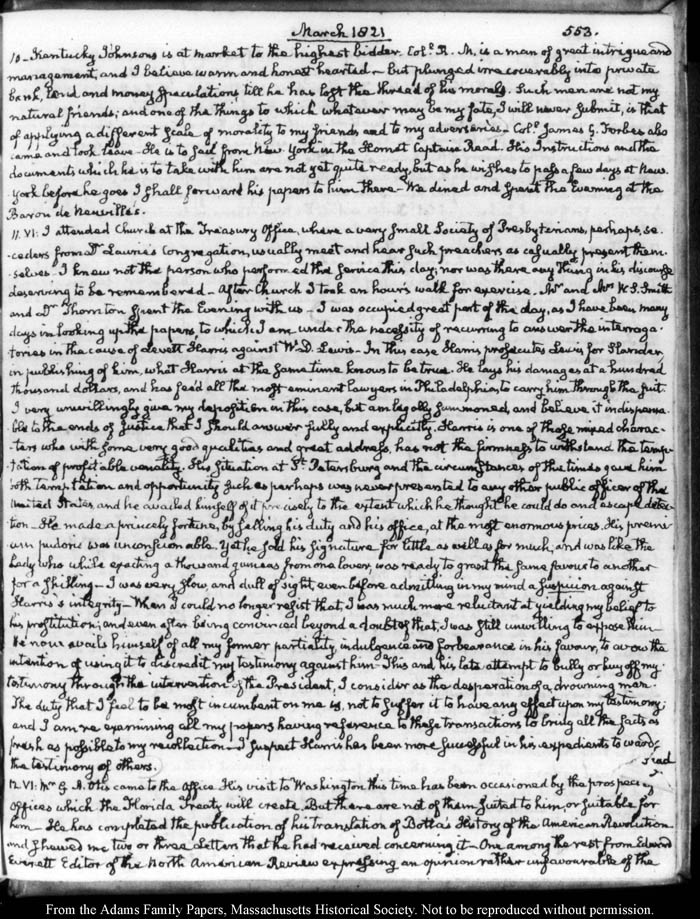 March 1821
553.
10 – Kentucky Johnsons is at market to the highest bidder. Col.o R. M. is a man of great intrigue and
management, and I believe warm and honest hearted – but plunged irrecoverably into private
bank, land and money speculations till he has lost the thread of his morals. Such men are not my
natural friends; and one of the things to which whatever may be my fate, I will never submit, is that
of applying a different scale of morality to my friends and to my adversaries – Col.o James G. Forbes also
came and took leave. He is to sail from New-York in the Hornet Captain Read. His Instructions and the
documents which he is to take with him are not yet quite ready, but as he wishes to pass a few days at New-
York before he goes I shall forward his papers to him there – We dined and spent the Evening at the
Baron de Neuville's.
11. VI: I attended Church at the Treasury Office, where a very small Society of Presbyterians, perhaps, se-
-ceders from Dr Laurie's Congregation, usually meet and hear such preachers as casually present them-
-selves – I knew not the person who performed the service this day; nor was there any thing in his discourse
deserving to be remembered – After Church I took an hour's walk for exercise. Mr and Mrs W. S. Smith
and Dr Thornton spent the Evening with us – I was occupied great part of the day, as I have been many
days in looking up the papers to which I am under the necessity of recurring to answer the interroga-
-tories in the cause of Levett Harris against W. D. Lewis – In this case Harris prosecutes Lewis for Slander,
in publishing of him, what Harris at the same time knows to be true. He lays his damages at a hundred
thousand dollars, and has fee'd all the most eminent lawyers in Philadelphia, to carry him through the suit.
I very unwillingly give my deposition in this case, but am legally summoned, and believe it indispensa-
-ble to the ends of Justice that I should answer fully and explicitly. Harris is one of those mixed charac-
-ters who with some very good qualities and great address, has not the firmness to withstand the temp-
-tation of profitable venality. His situation at St. Petersburg and the circumstances of the times gave him
both temptation and opportunity such as perhaps was never presented to any other public officer of the
United States, and he availed himself of it precisely to the extent which he thought he could do and escape detec-
-tion – He made a princely fortune, by selling his duty and his office, at the most enormous prices. His premi-
um pudoris was unconscionable. Yet he sold his signature for little as well as for much; and was like the
Lady who while exacting a thousand guineas from one lover, was ready to grant the same favour to another
for a shilling – I was very slow, and dull of sight, even before admitting in my mind a suspicion against
Harris's integrity – When I could no longer resist that, I was much more reluctant at yielding my belief to
his prostitution; and even after being convinced beyond a doubt of that, I was still unwilling to expose him –
He now avails himself of all my former partiality, indulgence and forbearance in his favour, to avow the
intention of using it to discredit my testimony against him – This and his late attempt to bully or buy off my
testimony through the intervention of the President, I consider as the desperation of a drowning man.
The duty that I feel to be most incumbent on me is, not to suffer it to have any effect upon my testimony;
and I am re-examining all my papers having reference to those transactions to bring all the facts as
fresh as possible to my recollection – I suspect Harris has been more successful in his expedients to ward
the testimony of others.
12. VI: Mr G. A. Otis came to the Office. His visit to Washington this time has been occasioned by the prospect of
Offices which the Florida Treaty will create. But there are not of them suited to him, or suitable for
him – He has completed the publication of his translation of Botta's History of the American Revolution
and shewed me two or three Letters that he had received concerning it – One among the rest from Edward
Everett Editor of the North American Review expressing an opinion rather unfavourable of the
From the Adams Family Papers, Massachusetts Historical Society. Not to be reproduced without permission.